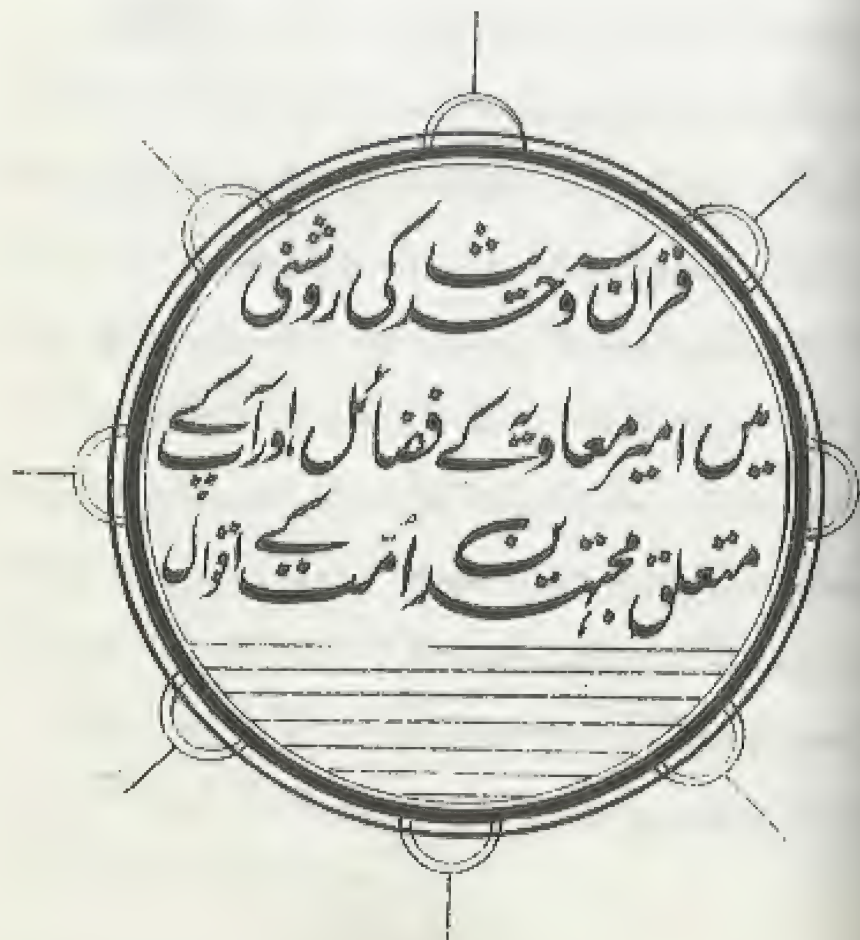 قرآن و حدیث کی روشنی
میں امیر معاویہؓ کے فضائل اور آپ کے
متعلق مجتہدین اُمّت کے اقوال